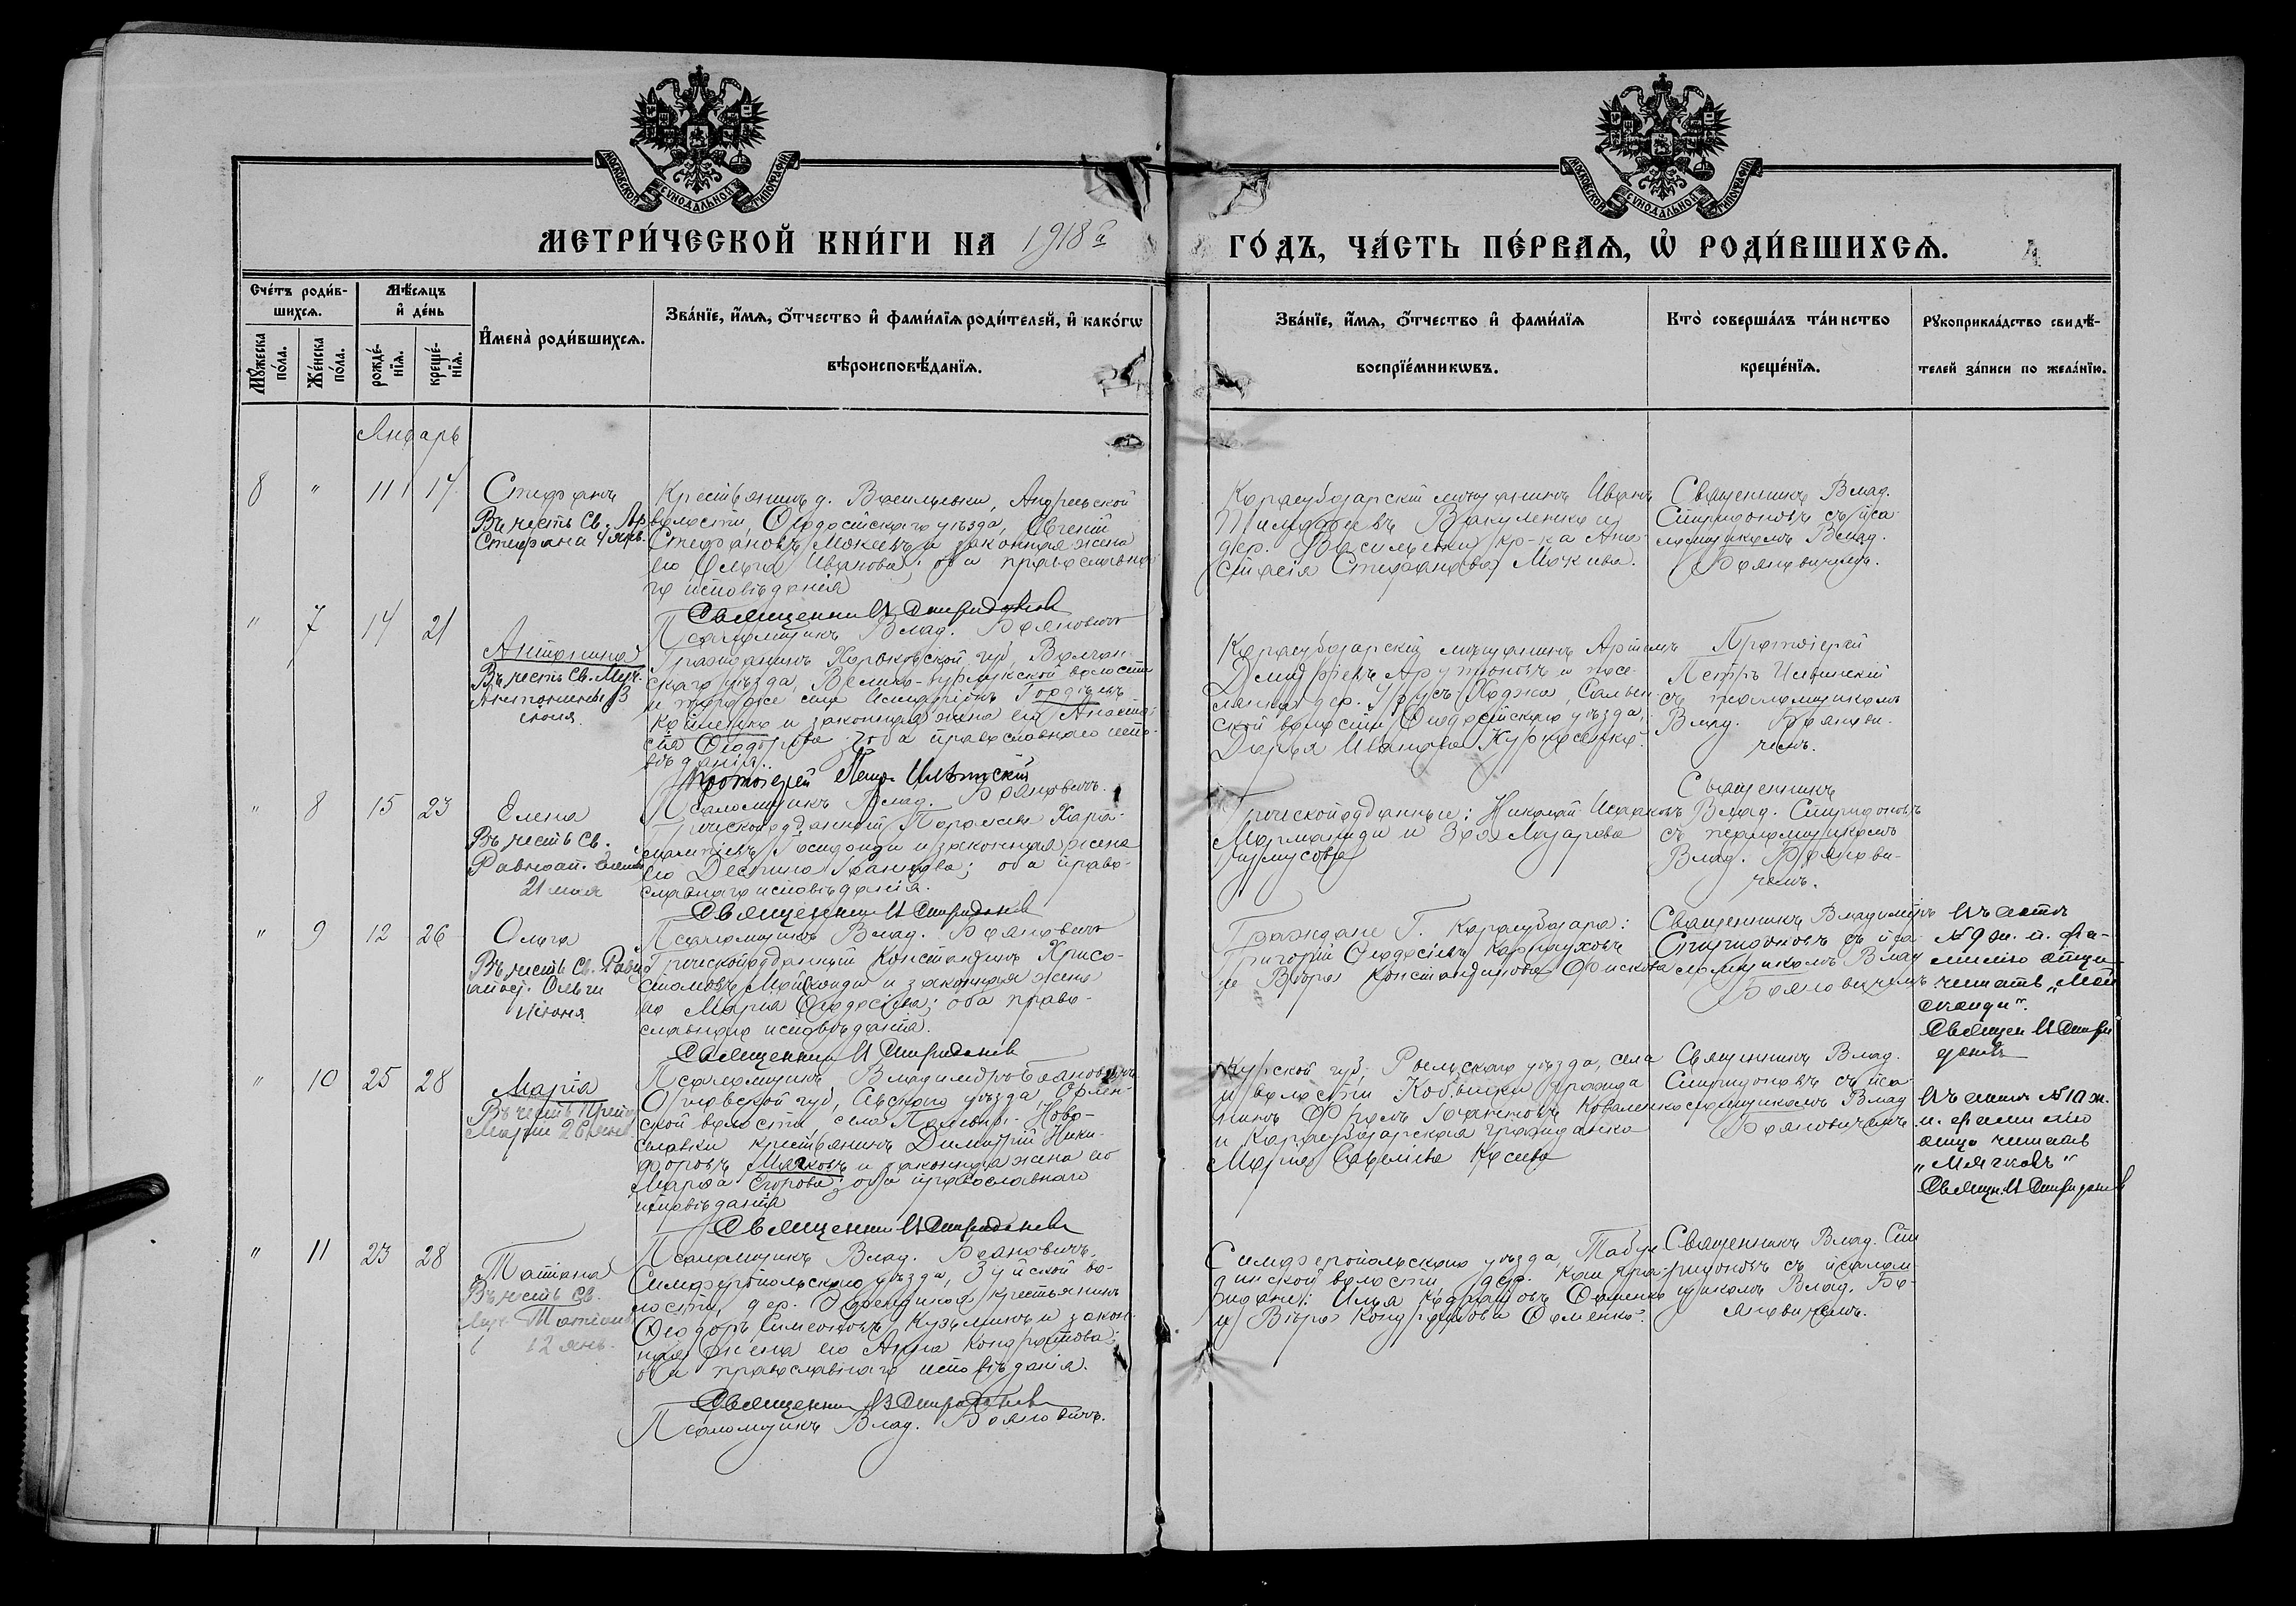 МОСКОВСКОЙ СУНОДАЛЬНОЙ ТИПОГРАФІИ
МОСКОВСКОЙ СУНОДАЛЬНОЙ ТИПОГРАФІИ
МЕТРИ́ЧЕСКОЙ КНИ́ГИ НА 1918й
ГО́ДЪ, ЧА́СТЬ ПЕ́РВАѦ, Ѡ҆ РОДИ́ВШИХСѦ.
4
Сче́тъ роди́в-
шихсѧ.
Мѣ́сѧцъ
и҆ де́нь
Мꙋ́жеска
по́ла.
Же́нска
по́ла.
рожде́-
нїѧ.
креще́-
нїѧ.
И҆мена̀ роди́вшихсѧ.
Зва́нїе, и҆́мѧ, ѻ҆́тчество и҆ фами́лїѧ роди́телей, и҆ како́гѡ
вѣроисповѣ́данїѧ.
Зва́нїе, и҆́мѧ, ѻ҆́тчество и҆ фами́лїѧ
воспрїе́мникѡвъ.
Кто̀ соверша́лъ та́инство
креще́нїѧ.
Рꙋкоприкла́дство свидѣ́-
телей за́писи по жела́нїю.
Январь
8 " 11 17
Стефанъ
Въ честь Св. Ар.
Стефана 4 янв.
Крестьянинъ д. Васильевки, Андреевской
волости, Ѳеодосійскаго уѣзда, Евгеній
Стефановъ Мокіевъ и законная жена
его Ольга Иванова; оба православна-
го исповѣданія
Священникъ В Спиридоновъ
Псаломщикъ Влад. Бояновичъ
Карасубазарскій мѣщанинъ Иванъ
Тимофеевъ Вакуленко и
дер. Васильевки кр-ка Ана-
стасія Стефанова Мокіева.
Священникъ Влад.
Спиридоновъ съ пса-
ломщикомъ Влад.
Бояновичемъ.
" 7 14 21
Антонина
Въ честь Св. Муч.
Антонины 13
іюня
Гражданинъ Харьковской губ, Волчан-
скаго уѣзда, Велико-Бурлукской волости
и того же села Гордѣевъ
и законная жена его Анаста-
сія Ѳеодорова; оба православнаго испо-
вѣданія.
Протоіерей Петръ
Псаломщикъ Влад. Бояновичъ.
Карасубазарскій мѣщанинъ Артемъ
Димитріевъ Арутюновъ и посе-
лянка дер. Урусъ-Ходжа, Салын-
ской волости Ѳеодосійскаго уѣзда,
Дарья Иванова
Протоіерей
Петръ
съ псаломщикомъ
Влад. Боянови-
чемъ.
" 8 15 23
Елена
Въ честь Св.
Равноап. Елены
21 мая
Греческоподданный Хара-
лампіевъ и законная жена
его Деспина Иванова; оба право-
славнаго исповѣданія.
Священникъ В Спиридоновъ
Псаломщикъ Влад. Бояновичъ
Греческоподданные: Николай Исааковъ
и Зоя Лазарева
Священникъ
Влад. Спиридоновъ
съ псаломщикомъ
Влад. Боянови-
чемъ.
" 9 12 26
Ольга
Въ честь Св. Равно
апост. Ольги
11 іюня
Греческоподданный Константинъ Хрисо-
стомовъ и законная жена
его Марія Ѳеодосіева; оба право-
славнаго исповѣданія.
Священникъ В Спиридоновъ
Псаломщикъ Владиміръ Бояновичъ
Граждане Г. Карасубазара:
Григорій Ѳеодосіевъ
и Вѣра Константинова
Священникъ Владиміръ
Спиридоновъ съ пса-
ломщикомъ Влад
Бояновичемъ
Въ актѣ
№ 9 ж. п. фа-
милію отца
читать „Май
".
Священ В Спири
доновъ
" 10 25 28
Марія
Въ честь Преп.
Маріи 26 янв
Орловской губ, Сѣвскаго уѣзда,
ской волости, села Ново-
крестьянинъ Димитрій Ники-
форовъ Мячковъ и законная жена его
Марѳа Егорова; оба православнаго
исповѣданія
Священникъ В Спиридоновъ
Псаломщикъ Влад. Бояновичъ.
Курской губ, Рыльскаго уѣзда, села
и волости Кобылки гражда
нинъ Ивановъ Коваленко
и Карасубазарская гражданка
Марія Савельева Косева
Священникъ Влад.
Спиридоновъ съ пса-
ломщикомъ Влад
Бояновичемъ
Въ актѣ № 10 ж.
п. фамилію
отца читать
„Мячковъ"
Священ. В Спиридоновъ
" 11 23 28
Татіана
Въ честь Св.
Муч. Татіаны
12 янв.
Симферопольскаго уѣзда, Зуйской во-
лости, дер. крестьянинъ
Ѳеодоръ Симеоновъ Кузьминъ и закон-
ная жена его Анна Кондратова;
оба православнаго исповѣданія.
Священникъ В Спиридоновъ
Псаломщикъ Влад. Бояновичъ.
Симферопольскаго уѣзда, Табул
динской волости, дер. гра-
ждане: Илья Кодратовъ Ѳоменко
и Вѣра Кондратова Ѳоменко.
Священникъ Влад. Спи
ридоновъ съ псалом
щикомъ Влад. Бо-
яновичемъ.